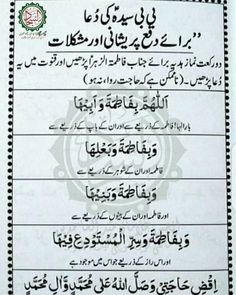 بی بی سیدہؑ کی دُعا
”برائے رفع پریشانی اور مشکلات
دو رکعت نماز ہدیہ برائے جناب فاطمۃ الزہراؑ پڑھیں اور قنوت میں یہ
دُعا پڑھیں۔ (ناممکن ہے کہ حاجت روا نہ ہو)
اَللّٰهُمَّ بِفَاطِمَةَ وَاَبِيْهَا
بارالہا! فاطمہ کے ذریعے سے اور ان کے باپ کے ذریعے سے
وَبِفَاطِمَةَ وَبَعْلِهَا
اور فاطمہ اور ان کے شوہر کے ذریعے سے
وَبِفَاطِمَةَ وَبَنِيْهَا
اور فاطمہ اور ان کے بیٹوں کے ذریعے سے
وَبِفَاطِمَةَ وَسِرِّ الْمُسْتَوْدَعِ فِيْهَا
اور اس راز کے ذریعے سے جو اس میں موجود ہے
اِقْضِ حَاجَتِىْ وَصَلَّى اللهُ عَلٰى مُحَمَّدٍ وَّاٰلِ مُحَمَّدٍ